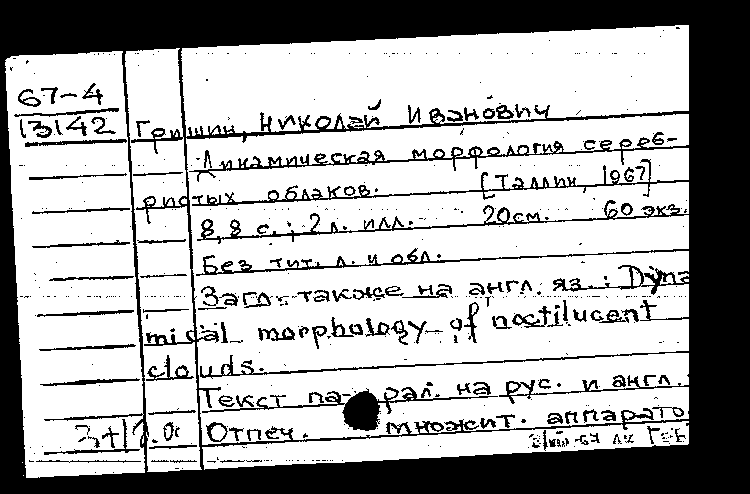 67-4
13142 Гришин, Николай Иванович
Динамическая морфология сереб-
ристых облаков. [Таллин, 1967]
8,8 с.; 2 л. илл. 20см. 60 экз.
Без тит. л. и обл.
Загл. также на англ. яз.: Dyna
mical morphology of noctilucent
clouds.
Текст парал. на рус. и англ.
Отпеч. множит. аппарато